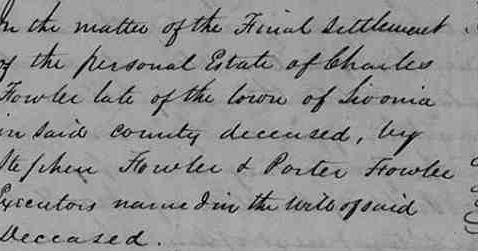 In the matter of the Final Settlement
of the personal Estate of Charles
Fowler late of the town of Livonia
in said county deceased, by
Stephen Fowler & Porter Fowler
Executors named in the Will of said
Deceased.